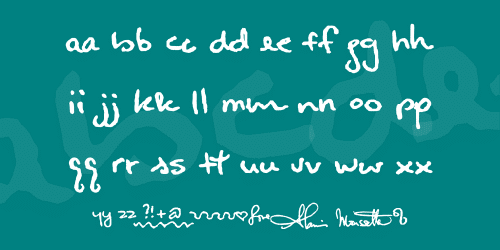 aa bb cc dd ee ff gg hh
ii jj kk ll mm nn oo pp
qq rr ss tt uu vv ww xx
yy zz ?!+@